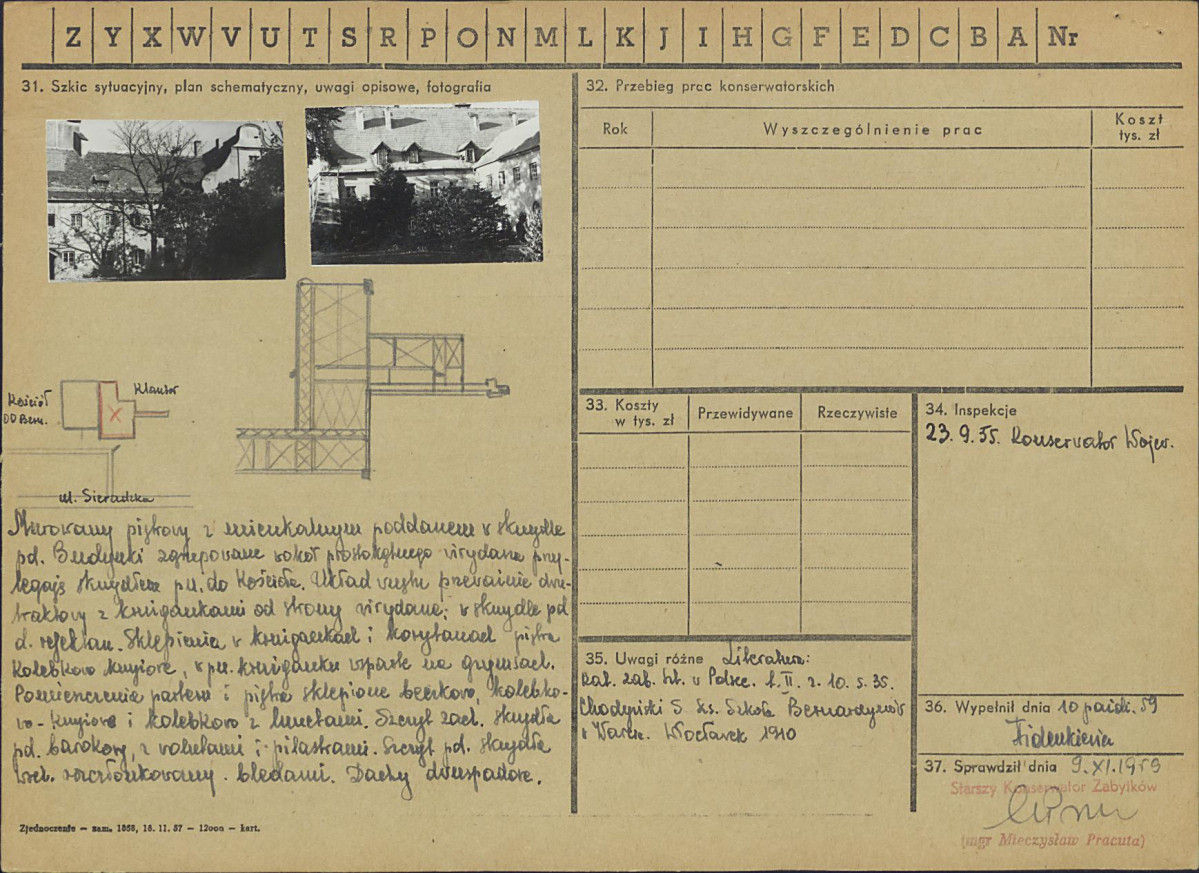 Z Y X W V U T S R P O N M L K J I H G F E D C B A Nr
31. Szkic sytuacyjny, plan schematyczny, uwagi opisowe, fotografia
Kościół
OO Bern.
Klasztor
ul. Sieradzka
Murowany piętrowy z mieszkalnym poddaszem w skrzydle
pd. Budynki zgrupowane wokół prostokątnego wirydarza przy-
legają skrzydłem pn. do Kościoła. Układ wnętrz przeważnie dwu-
traktowy z krużgankami od strony wirydarza; w skrzydle pd
d. refektarz. Sklepienia w krużgankach i korytarzach piętra
kolebkowo krzyżowe, w pn. krużganku wsparte na gzymsach.
Pomieszczenia parteru i piętra sklepione beczkowo, kolebko-
wo-krzyżowo i kolebkowo z lunetami. Szczyt zach. skrzydła
pd. barokowy, z wolutami i pilastrami. Szczyt pd. skrzydła
wsch. rozczłonkowany blendami. Dachy dwuspadowe.
Zjednoczenie — zam. 1858, 18. II. 57 — 12000 — kart.
32. Przebieg prac konserwatorskich
Rok
Wyszczególnienie prac
Koszt
tys. zł
33. Koszty
w tys. zł
Przewidywane
Rzeczywiste
34. Inspekcje
23. 9. 55. Konserwator Wojew.
35. Uwagi różne Literatura:
Kat. zab. szt. w Polsce. t. II. z. 10. s. 35.
Chodyński S. Ks. Szkoła Bernardynów
w Warcie. Włocławek 1910
36. Wypełnił dnia 10 paźdz. 59
37. Sprawdził dnia 9.XI.1959
Starszy Konserwator Zabytków
(mgr Mieczysław Pracuta)